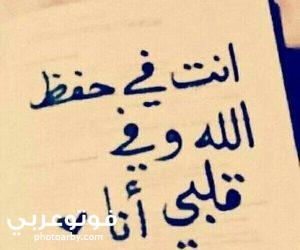 انت في حفظ
الله وفي
قلبي أنا
فوتوعربي
photoarby.com